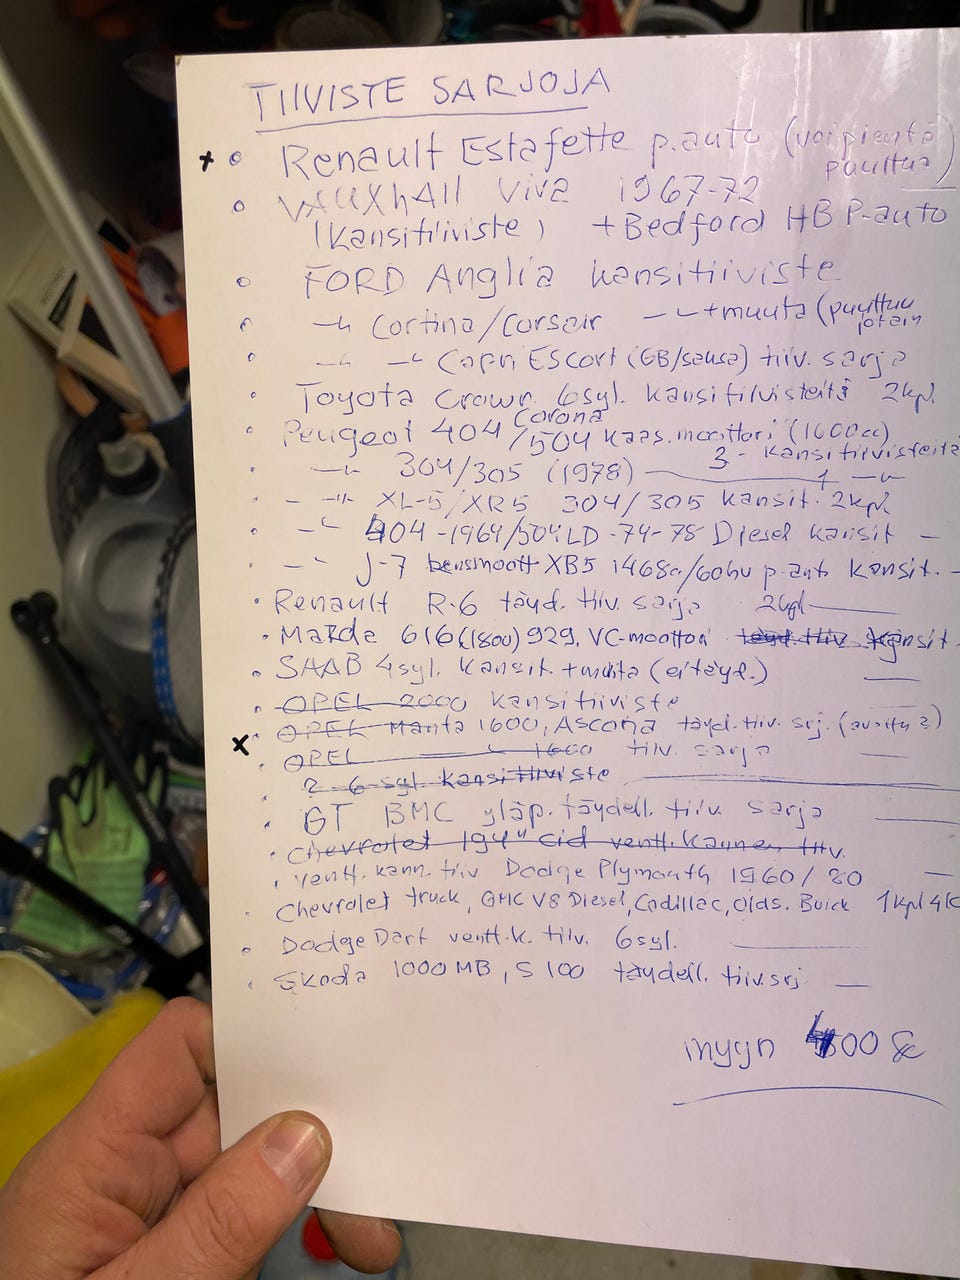 TIIVISTE SARJOJA
x ° Renault Estafette p.auto (voi pientä
puuttua)
° VAUXHAll Viva 1967-72
(Kansitiiviste) + Bedford HB P-auto
° FORD Anglia kansitiiviste
-"- Cortina/Corsair -"- + muuta (puuttuu
jotain
-"- -"- Capri Escort (GB/saksa) tiiv. sarja
Toyota Crown 6syl. kansitiivisteitä 2kpl.
Corona
Peugeot 404/504 kaas. moottori (1600cc)
3 - kansitiivisteitä
-"- 304/305 (1978) 1 -"-
-"- XL-5/XR5 304/305 kansit. 2kpl
-"- 404 -1964/504LD -74-78 Diesel kansit -
-"- J-7 bensmoott XB5 1468c/60hv p-auto kansit. -
Renault R-6 täyd. tiiv. sarja 2kpl
Mazda 616 (1800) 929, VC-moottori täyd. tiiv kansit
SAAB 4syl. kansit + muuta (ei täyd.)
OPEL 2000 kansitiiviste
x OPEL Manta 1600, Ascona täyd. tiiv. srj. (avattu?)
OPEL -"- 1600 tiiv. sarja
2 6-syl. kansitiiviste
GT BMC yläp. täydell. tiiv. sarja
Chevrolet 194" cid ventt. kannen tiiv.
ventt. kann. tiiv Dodge Plymouth 1960/80
Chevrolet truck, GMC V8 Diesel, Cadillac, Olds. Buick 1kpl
Dodge Dart ventt.k. tiiv. 6syl.
Skoda 1000 MB, S100 täydell. tiiv.srj
myyn 400 €